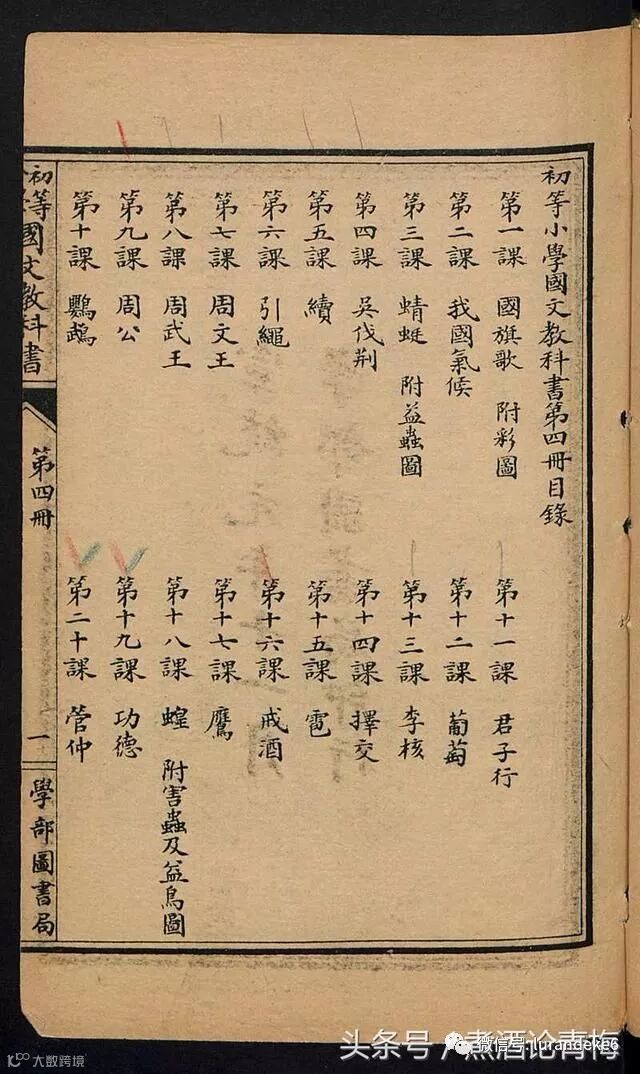 初等小學國文教科書第四冊目錄
第一課 國旗歌 附彩圖
第二課 我國氣候
第三課 蜻蜓 附益蟲圖
第四課 吳伐荆
第五課 續
第六課 引繩
第七課 周文王
第八課 周武王
第九課 周公
第十課 鸚鵡
第十一課 君子行
第十二課 葡萄
第十三課 李核
第十四課 擇交
第十五課 雹
第十六課 戒酒
第十七課 鷹
第十八課 蝗 附害蟲及益鳥圖
第十九課 功德
第二十課 管仲
初等國文教科書
第四冊
一
學部圖書局
头条号 / 煮酒论青梅
微信号: lurandeke6
大数跨境